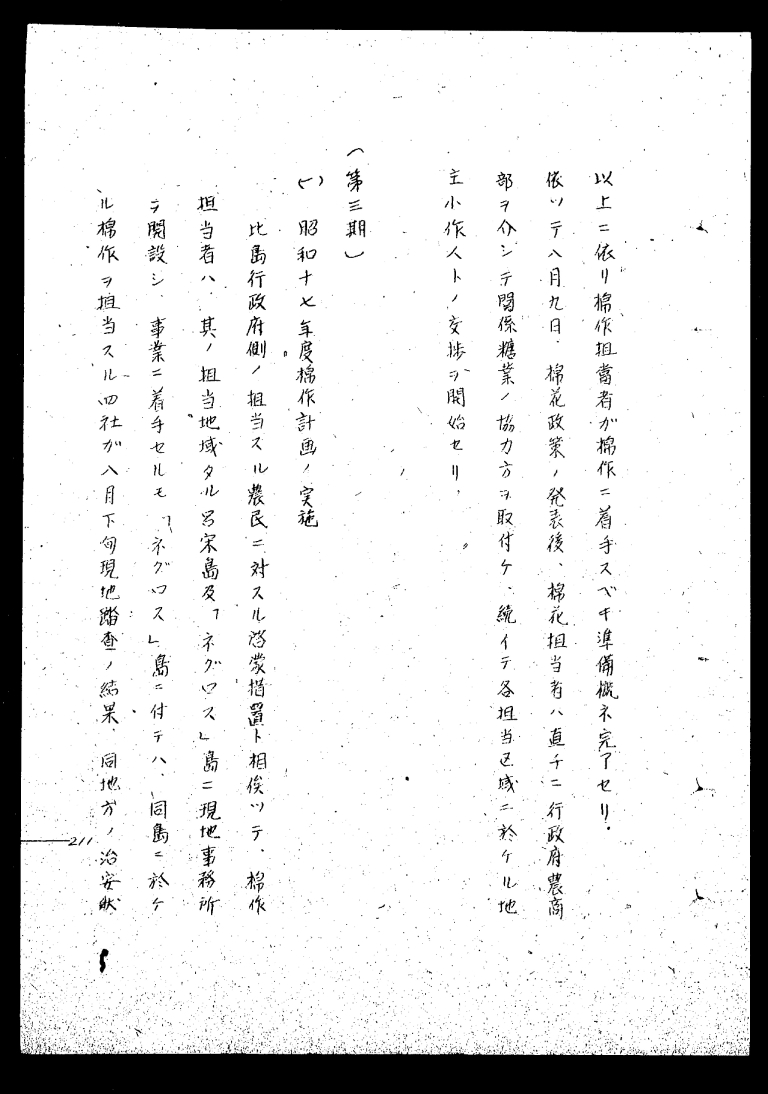 以上ニ依リ棉作担當者ガ棉作ニ着手スベキ準備概ネ完了セリ。
依ツテ八月九日、棉花政策ノ発表後、棉花担当者ハ直チニ行政府農商
部ヲ介シテ関係糖業ノ協力方ヲ取付ケ、続イテ各担当区域ニ於ケル地
主小作人トノ交捗ヲ開始セリ、
(第三期)
(一) 昭和十七年度棉作計画ノ実施
比島行政府側ノ担当スル農民ニ対スル啓蒙措置ト相俟ツテ、棉作
担当者ハ、其ノ担当地域タル呂宋島及「ネグロス」島ニ現地事務所
ヲ開設シ、事業ニ着手セルモ「ネグロス」島ニ付テハ、同島ニ於ケ
ル棉作ヲ担当スル四社ガ八月下旬現地踏査ノ結果、同地方ノ治安状
211